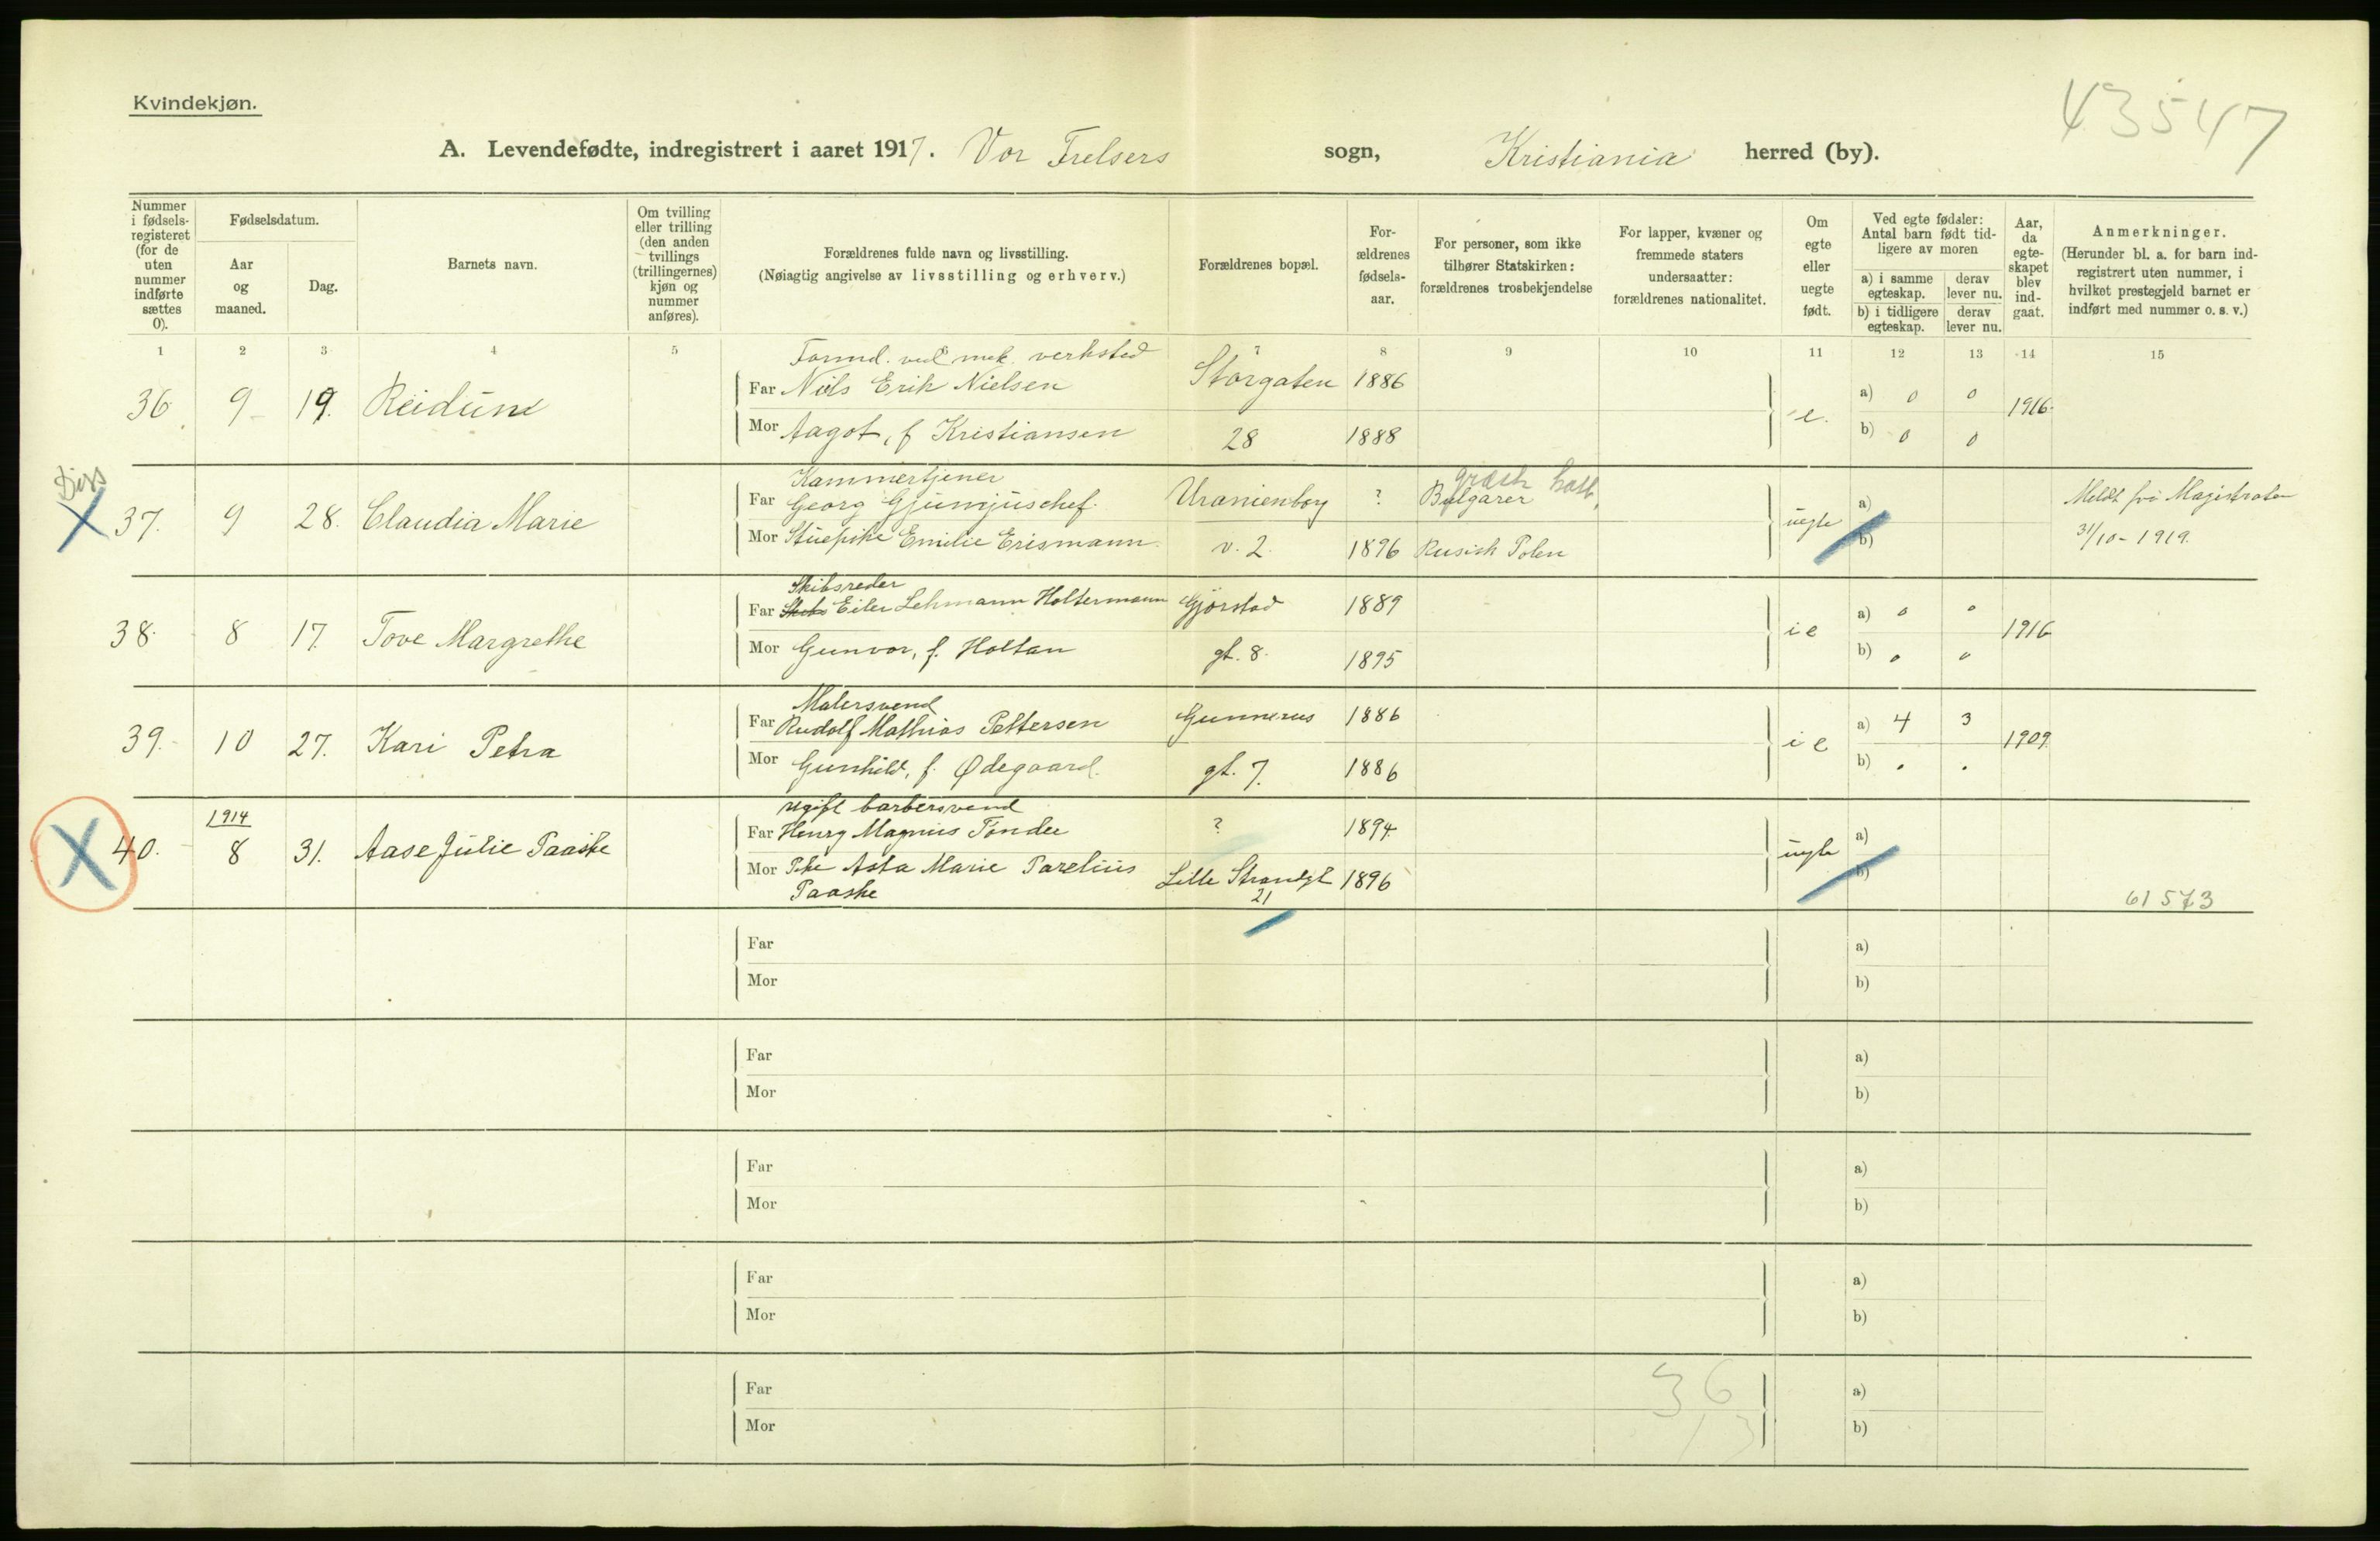 43547
Kvindekjøn.
A. Levendefødte, indregistrert i aaret 1917. Vor Frelsers sogn, Kristiania herred (by).
Nummer i fødsels-registeret (for de uten nummer indførte sættes 0).
Fødselsdatum.
Aar og maaned.
Dag.
Barnets navn.
Om tvilling eller trilling (den anden tvillings (trillingernes) kjøn og nummer anføres).
Forældrenes fulde navn og livsstilling.
(Nøiagtig angivelse av livsstilling og erhverv.)
Forældrenes bopæl.
For-ældrenes fødsels-aar.
For personer, som ikke tilhører Statskirken: forældrenes trosbekjendelse
For lapper, kvæner og fremmede staters undersaatter: forældrenes nationalitet.
Om egte eller uegte født.
Ved egte fødsler: Antal barn født tid-ligere av moren
a) i samme egteskap.
derav lever nu.
b) i tidligere egteskap.
derav lever nu.
Aar, da egte-skapet blev ind-gaat.
Anmerkninger.
(Herunder bl. a. for barn ind-registrert uten nummer, i hvilket prestegjeld barnet er indført med nummer o. s. v.)
1 2 3 4 5 7 8 9 10 11 12 13 14 15
Formd. ved mek. verksted
36 9 19. Reidun Far Niels Erik Nielsen Storgaten 1886 e. a) 0 0 1916.
Mor Aagot, f Kristiansen 28 1888 b) 0 0
Diss
Kammertjener græsk kath.
37. 9 28. Claudia Marie Far Georg Gjumjuschef. Uranienborg ? Bulgarer uegte a) Meldt fra Magistraten
Mor Stuepike Emilie Erismann. v. 2. 1896 Rusisk Polen b) 31/10 - 1919.
Skibsreder
38. 8 17. Tove Margrethe Far Skibs Eiler Lehmann Holtermann Gjørstad 1889 i e a) 0 0 1916
Mor Gunvor, f. Holtan gt. 8. 1895 b) 0 0
Malersvend
39. 10 27. Kari Petra Far Rudolf Mathias Pettersen Gunnerus 1886 i e a) 4 3 1909
Mor Gunhild, f. Ødegaard. gt. 7. 1886 b) . .
1914 ugift barbersvend
40. 8 31. Aase Julie Paaske Far Henry Magnus Tønder ? 1894 uegte a)
Mor Pike Asta Marie Parelius Lille Strandgt 1896 b)
Paaske 21 61573
Far a)
Mor b)
Far a)
Mor b)
Far a)
Mor b)
Far a)
Mor b)
Far 36 a)
Mor b)